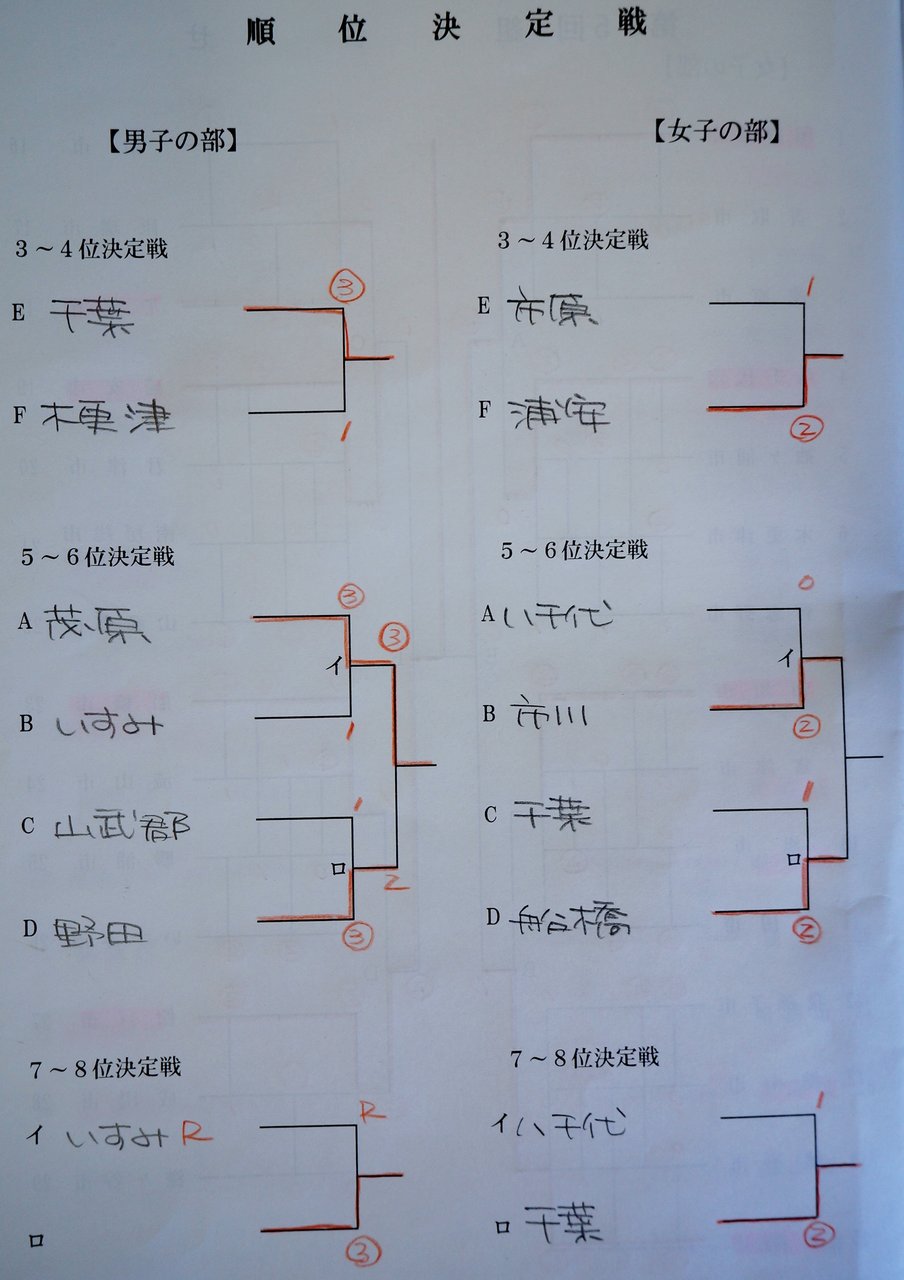 順位決定戦
【男子の部】
3～4位決定戦
③
E 千葉
F 木更津
1
5～6位決定戦
③
A 茂原
③
イ
B いすみ
1
1
C 山武郡
ロ
2
D 野田
③
7～8位決定戦
R
イ いすみ R
ロ
③
【女子の部】
3～4位決定戦
1
E 市原
F 浦安
②
5～6位決定戦
0
A 八千代
イ
B 市川
②
1
C 千葉
ロ
D 船橋
②
7～8位決定戦
1
イ 八千代
ロ 千葉
②